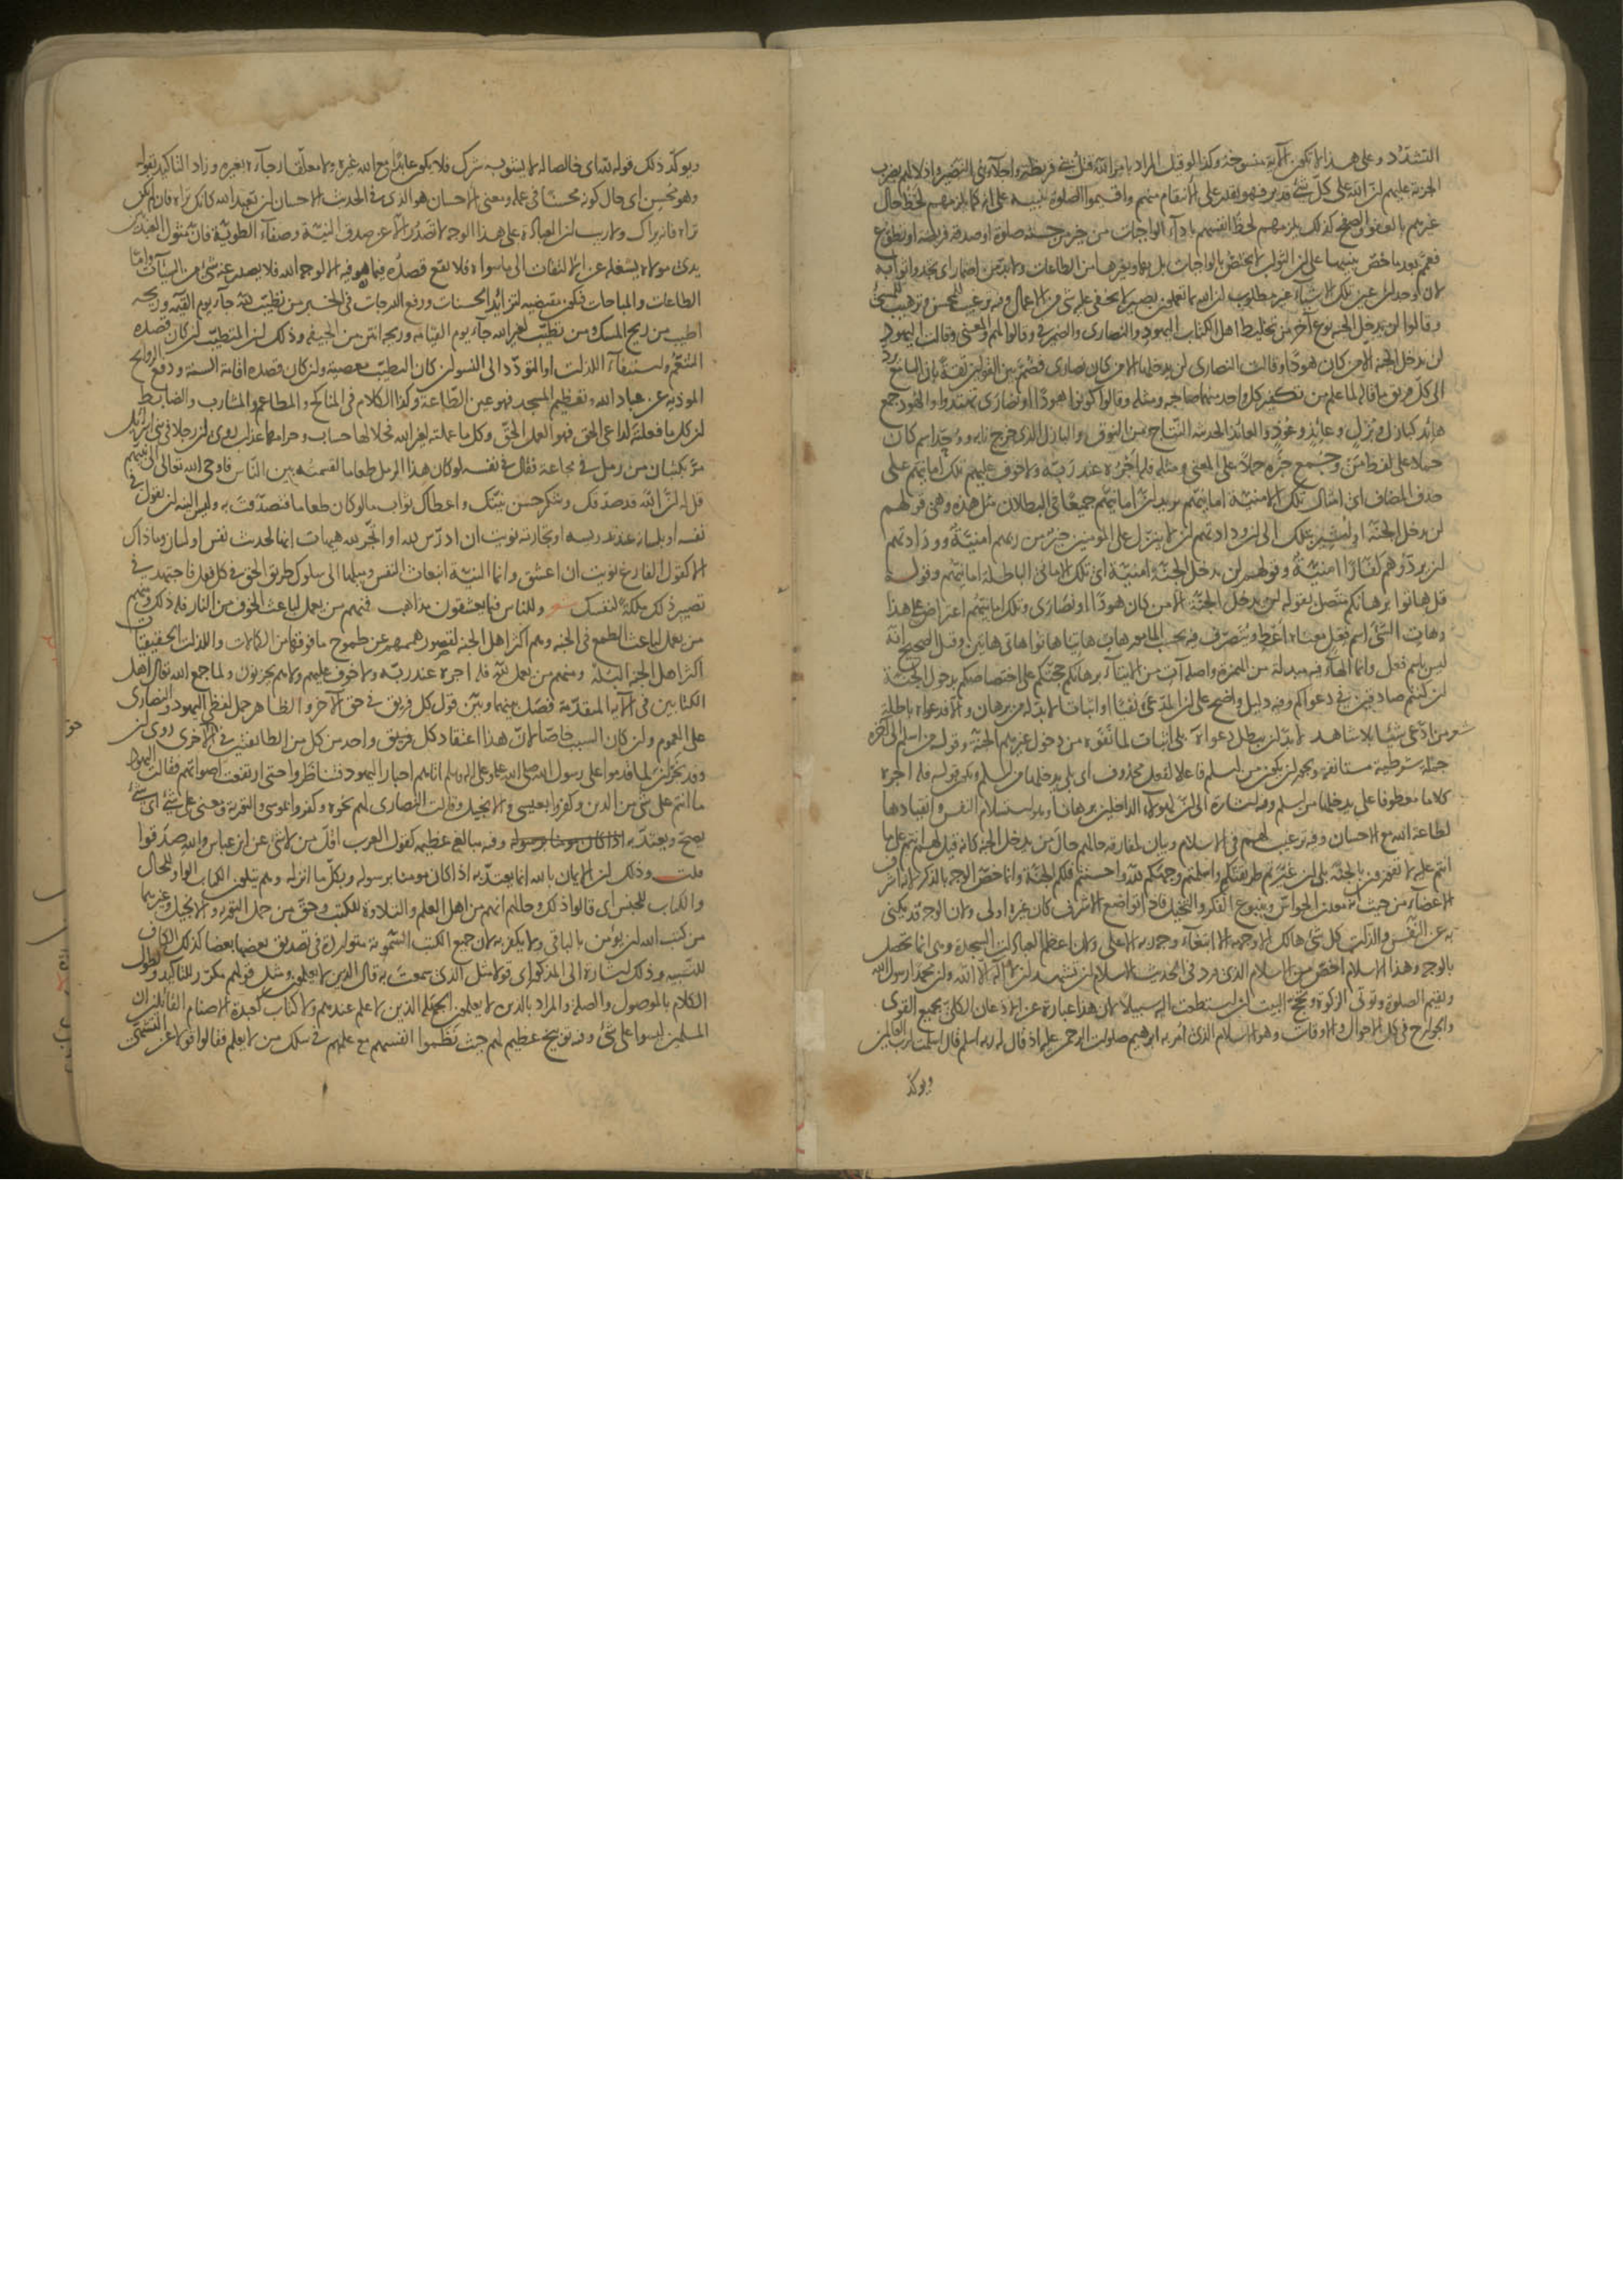 التشدد وعلى هذا لا تكون الآية منسوخة وكذا لو قيل المراد بامر الله قتل بني قريظة واجلاء بني النضير واذلالهم بضرب
الجزية عليهم ان الله على كل شئ قدير فهو يقدر على الانتقام منهم واقيموا الصلوة تنبيه على انه كما يلزمهم لحظ حال
غيرهم بالعفو والصفح كذلك يلزمهم لحظ انفسهم باداء الواجبات من خير من حسنة صلوة او صدقة فريضة او تطوع
فعمم بعد ما خص تنبيها على ان الثواب لا يختص بالواجبات بل بها وبغيرها من الطاعات ولا بد من اضمار اى تجدوا ثوابه
لان وجدان عين تلك الاشياء غير مطلوب ان الله بما تعملون بصير لا يخفى عليه شئ من الاعمال وفيه ترغيب للمحسن وترهيب للمسئ
وقالوا لن يدخل الجنة نوع آخر من تخليط اهل الكتاب اليهود والنصارى والضمير في وقالوا لهم والمعنى وقالت اليهود
لن يدخل الجنة الا من كان هودا وقالت النصارى لن يدخلها الا من كان نصارى فضم بين القولين ثقة بان السامع يرد
الى كل فريق ما قاله لما علم من تكفير كل واحد منهما صاحبه ومثله وقالوا كونوا هودا او نصارى تهتدوا والهود جمع
هائد كبازل وبزل وعائذ وعوذ والعائذ الحديثة النتاج من النوق والبازل الذى خرج نابه ووحد اسم كان
حملا على لفظ من وجمع خبره حملا على المعنى ومثله فله اجره عند ربه ولا خوف عليهم تلك امانيهم على
حذف المضاف اى امثال تلك الامنية امانيهم يريد ان امانيهم جميعا في البطلان مثل هذه وهى قولهم
لن يدخل الجنة او اشير بتلك الى ان ودادتهم ان لا ينزل على المومنين خير من ربهم امنية وودادتهم
ان يردوهم كفارا امنية وقولهم لن يدخل الجنة امنية اى تلك الامانى الباطلة امانيهم وقوله
قل هاتوا برهانكم متصل بقوله لن يدخل الجنة الا من كان هودا او نصارى وتلك امانيهم اعتراض على هذا
وهات الشئ اسم فعل معناه اعط ويتصرف فيه بحسب المامور هات هاتيا هاتوا هاتى هاتين وقيل الصحيح انه
ليس باسم فعل وانما الهاء فيه مبدلة من الهمزة واصله آت من الايتاء برهانكم حجتكم على اختصاصكم بدخول الجنة
ان كنتم صادقين في دعواكم وفيه دليل واضح على ان المدعى نفيا او اثباتا لا بد له من برهان والا فدعواه باطلة
شعر من ادعى شيئا بلا شاهد لا بد ان يبطل دعواه بلى اثبات لما نفوه من دخول غيرهم الجنة وقوله من اسلم الى آخره
جملة شرطية مستانفة ويجوز ان يكون من اسلم فاعلا لفعل محذوف اى بلى يدخلها من اسلم ويكون قوله فله اجره
كلاما معطوفا على يدخلها من اسلم وفيه اشارة الى ان لهؤلاء الداخلين برهانا وهو استسلام النفس وانقيادها
لطاعة الله مع الاحسان وفيه ترغيب لهم في الاسلام وبيان لمفارقة حالهم حال من يدخل الجنة كانه قيل لهم انتم على ما
انتم عليه لا تفوزون بالجنة بلى ان غيرتم طريقتكم واسلمتم وجوهكم لله واحسنتم فلكم الجنة وانما خص الوجه بالذكر لانه اشرف
الاعضاء من حيث انه معدن الحواس وينبوع الفكر والتخيل فاذا تواضع الاشرف كان غيره اولى ولان الوجه قد يكنى
به عن النفس والذات كل شئ هالك الا وجهه الا ابتغاء وجه ربه الاعلى ولان اعظم العبادات السجدة وهى انما تحصل
بالوجه وهذا الاسلام اخص من الاسلام الذى ورد في الحديث الاسلام ان تشهد ان لا اله الا الله وان محمدا رسول الله
وتقيم الصلوة وتوتى الزكوة وتحج البيت ان استطعت اليه سبيلا لان هذا عبارة عن الاذعان الكلى بجميع القوى
والجوارح في كل الاحوال والاوقات وهو الاسلام الذى امر به ابرهيم صلوات الرحمن عليه اذ قال له ربه اسلم قال اسلمت لرب العالمين
ويوكد
ويوكد ذلك قوله لله اى خالصا له لا يشوبه شرك فلا يكون عابدا مع الله غيره ولا معلقا رجاءه بغيره وزاد التاكيد بقوله
وهو محسن اى حال كونه محسنا في عمله ومعنى الاحسان هو الذى في الحديث الاحسان ان تعبد الله كانك تراه فان لم تكن
تراه فانه يراك ولا ريب ان العبادة على هذا الوجه لا تصدر الا عن صدق النية وصفاء الطوية فان مثول العبد بين
يدى مولاه يشغله عن الالتفات الى ما سواه فلا يقع قصده فيما هو فيه الا لوجه الله فلا يصدر عنه شئ من السيآت واما
الطاعات والمباحات فتكون مقتضيه لتزايد الحسنات ورفع الدرجات في الخبر من تطيب لله جاء يوم القيمة وريحه
اطيب من ريح المسك ومن تطيب لغير الله جاء يوم القيامة وريحه انتن من الجيفة وذلك ان المتطيب ان كان قصده
التنعم واستيفاء اللذات او التودد الى النسوان كان التطيب معصية وان كان قصده اقامة السنة ودفع الروايح
الموذية عن عباد الله وتعظيم المسجد فهو عين الطاعة وكذا الكلام في المناكح والمطاعم والمشارب والضابط
ان كل ما فعلته لداعى الحق فهو العمل الحق وكل ما عملته لغير الله فحلالها حساب وحرامها عذاب روى ان رجلا في بنى اسرائيل
مر بكثبان من رمل في مجاعة فقال في نفسه لو كان هذا الرمل طعاما لقسمته بين الناس فاوحى الله تعالى الى نبيهم
قل له ان الله قد صدقك وشكر حسن نيتك واعطاك ثواب ما لو كان طعاما فتصدقت به وليس النية ان يقول في
نفسه او بلسانه عند تدريسه او تجارته نويت ان ادرس لله او اتجر لله هيهات انما لحديث نفس او لسان وما ذاك
الا كقول الفارغ نويت ان اعشق وانما النية انبعاث النفس وميلها الى سلوك طريق الحق في كل فعل فاجتهد في
تصيير ذلك ملكة لنفسك وللناس فيما يعشقون مذاهب فمنهم من يعمل لباعث الخوف من النار فله ذلك ومنهم
من يعمل لباعث الطمع في الجنة وهم اكثر اهل الجنة لقصور هممهم عن طموح ما فوقها من الكمالات واللذات الحقيقيات
اكثر اهل الجنة البله ومنهم من يعمل لله فله اجره عند ربه ولا خوف عليهم ولا هم يحزنون ولما جمع الله تعالى اهل
الكتابين في الآية المقدمة فصل بينهما وبين قول كل فريق في حق الآخر والظاهر حمل لفظى اليهود والنصارى
على العموم وان كان السبب خاصا لان هذا اعتقاد كل فريق واحد من كل من الطائفتين في الاخرى روى ان
وفد نجران لما قدموا على رسول الله صلى الله عليه وعلى اله وسلم اتاهم احبار اليهود فتناظروا حتى ارتفعت اصواتهم فقالت اليهود
ما انتم على شئ من الدين وكفروا بعيسى والانجيل وقالت النصارى لهم نحوه وكفروا بموسى والتورية ومعنى على شئ اى شئ
يصح ويعتد به اذا كان مومنا برسوله وفيه مبالغة عظيمة كقول العرب اقل من لا شئ عن ابن عباس والله صدقوا
قلت وذلك ان الايمان بالله انما يعتد به اذا كان مومنا برسوله وبكل ما انزله وهم يتلون الكتاب الواو للحال
والكتاب للجنس اى قالوا ذلك وحالهم انهم من اهل العلم والتلاوة للكتب وحق من حمل التورية والانجيل وغيرهما
من كتب الله ان يؤمن بالباقى ولا يكفر به لان جميع الكتب السموية متواردة في تصديق بعضها بعضا كذلك الكاف
للتشبيه وذلك اشارة الى المذكور اى قولا مثل الذى سمعت به قال الذين لا يعلمون ومثل قولهم مكرر للتاكيد ولطول
الكلام بالموصول والصلة والمراد بالذين لا يعلمون الجهلة الذين لا علم عندهم ولا كتاب كعبدة الاصنام القائلين ان
المسلمين ليسوا على شئ وفيه توبيخ عظيم لهم حيث نظموا انفسهم مع علمهم في سلك من لا يعلم فقالوا قولا عن التشهى